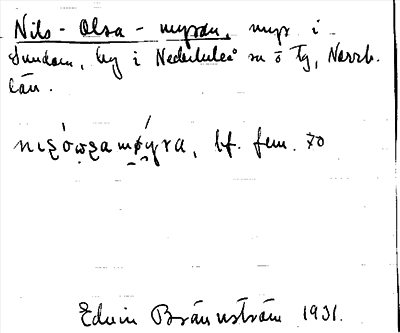 Nils-Olsa-myran, myr i
Sundom, by i Nederluleå sn o tg, Norrb.
län.
bf. fem. 70
Edvin Brännström 1931.